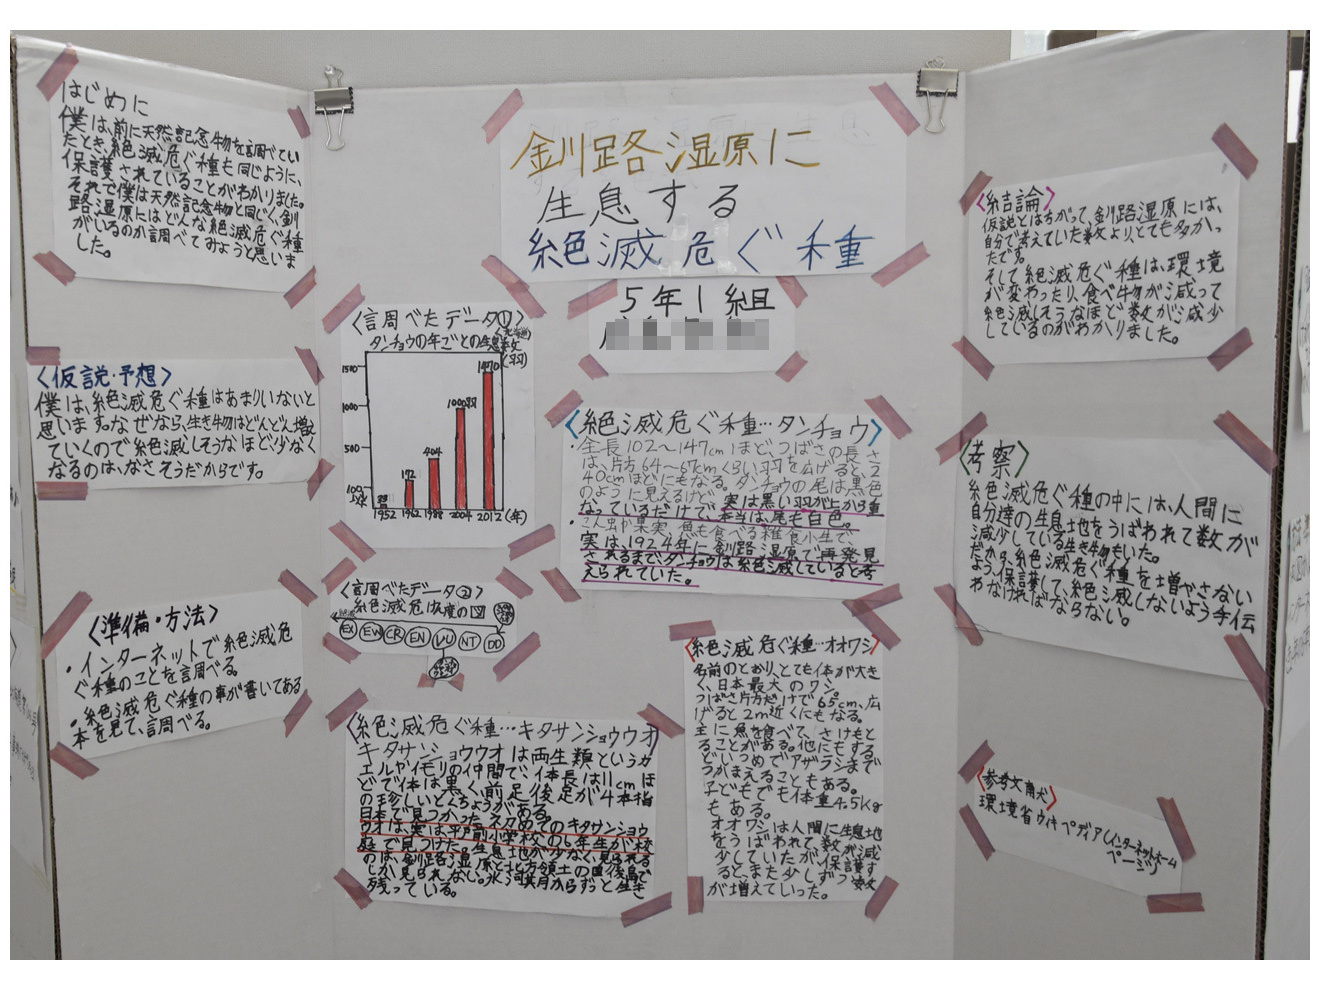 はじめに
僕は、前に天然記念物を調べてい
たとき、絶滅危ぐ種も同じように、
保護されていることがわかりました。
それで僕は天然記念物と同じく、釧
路湿原にはどんな絶滅危ぐ種
がいるのか調べてみようと思いま
した。
〈仮説・予想〉
僕は、絶滅危ぐ種はあまりいないと
思います。なぜなら、生き物はどんどん増え
ていくので絶滅しそうなほど少なく
なるのは、なさそうだからです。
〈準備・方法〉
・インターネットで絶滅危
ぐ種のことを調べる。
・絶滅危ぐ種の事が書いてある
本を見て、調べる。
釧路湿原に
生息する
絶滅危ぐ種
5年1組
〈調べたデータ①〉
タンチョウの年ごとの生息数
(北海道)
(羽)
1500
1000
500
100
33
172
404
1000羽
1470
1952 1962 1988 2004 2012(年)
〈調べたデータ②〉
絶滅危け度の図
絶滅
EX EW CR EN VU NT DD
〈絶滅危ぐ種…タンチョウ〉
・全長102〜147cmほど、つばさの長さ
は、片方64〜67cmくらい羽を広げると、2
40cmほどにもなる。タンチョウの尾は黒色
のように見えるけど、実は黒い羽が上から重
なっているだけで本当は、尾も白色。
・こん虫や果実、魚も食べる雑食小生で
実は、1924年に釧路湿原で再発見
されるまでタンチョウは絶滅していると考
えられていた。
〈絶滅危ぐ種…キタサンショウウオ〉
キタサンショウウオは両生類というカ
エルやイモリの仲間で、体長は11cmほ
どで体は黒く前足後足が4本指
の珍しいとくちょうがある。
日本で見つかったネカめてのキタサンショウ
ウオは、実は平戸前小学校の6年生が校
庭で見つけた。生息地が少なく見られる
のは、釧路湿原と北方領土の国後島で
しか見られない。氷河期からずっと生き
残っている。
〈絶滅危ぐ種…オオワシ〉
名前のとおり、とても体が大き
く、日本最大のワシ。
つばさ片方だけで65cm、広
げると2m近くにもなる。
主に魚を食べて、さけもと
ることがある。他にもする
どいつめでアザラシまで
つかまえることもある。
子どもでも体重4.5kg
もある。
オオワシは人間に生息地
をうばわれて、数が減
少していたが、保護す
ると、また少しずつ数
が増えていった。
〈結論〉
仮説とはちがって、釧路湿原には、
自分で考えていた数より、とても多かっ
たです。
そして絶滅危ぐ種は、環境
が変わったり、食べ物が減って
絶滅しそうなほど数が減少
しているのがわかりました。
〈考察〉
絶滅危ぐ種の中には、人間に
自分達の生息地をうばわれて数が
減少している生き物もいた。
だから、絶滅危ぐ種を増やさない
よう保護して、絶滅しないよう手伝
わなければならない。
〈参考文献〉
環境省ウィキペディア(インターネットホーム
ページ)